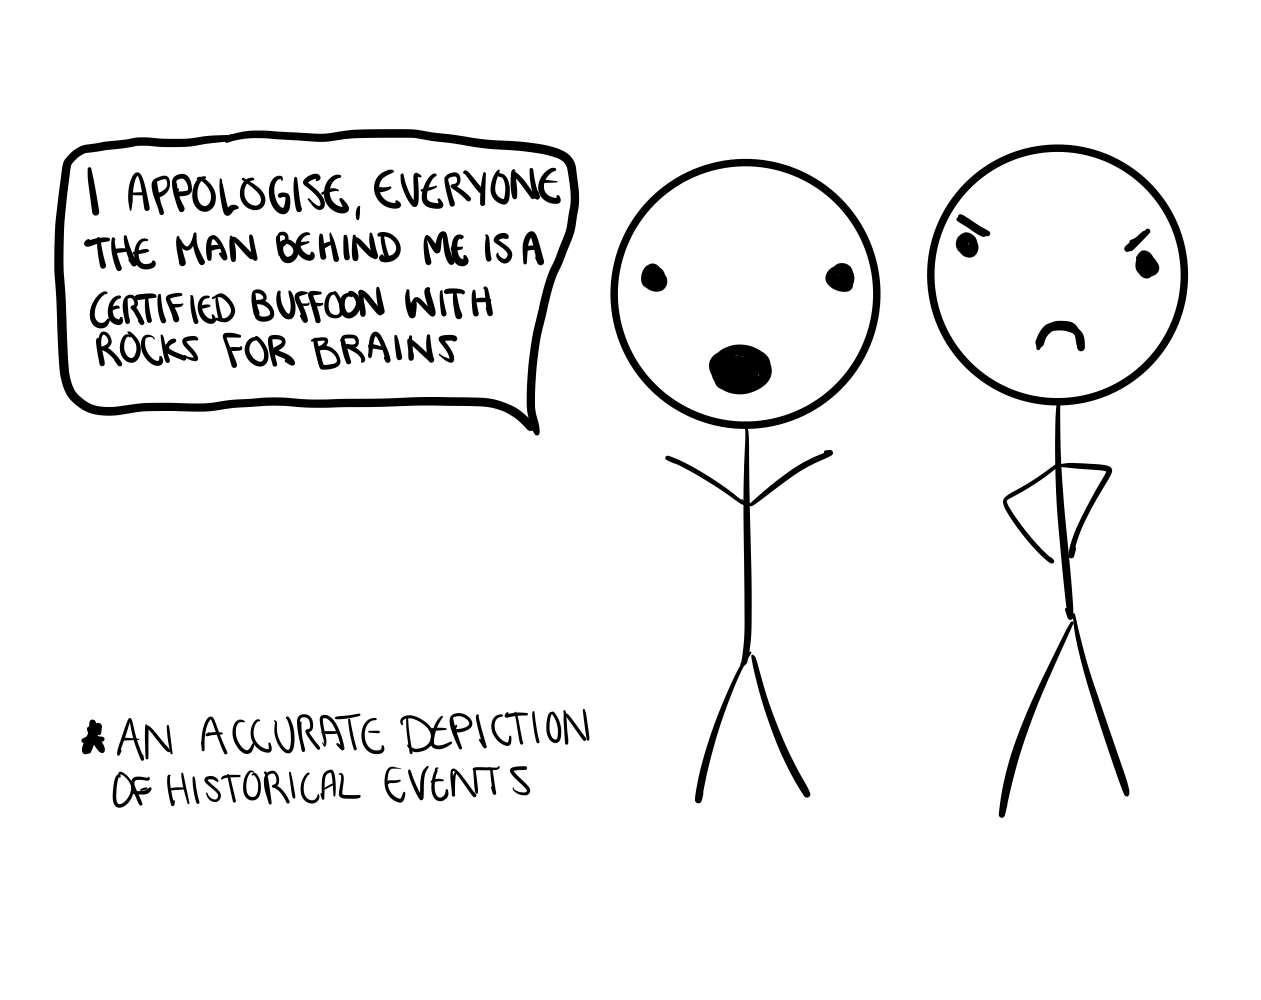 I APPOLOGISE, EVERYONE
THE MAN BEHIND ME IS A
CERTIFIED BUFFOON WITH
ROCKS FOR BRAINS
* AN ACCURATE DEPICTION
OF HISTORICAL EVENTS